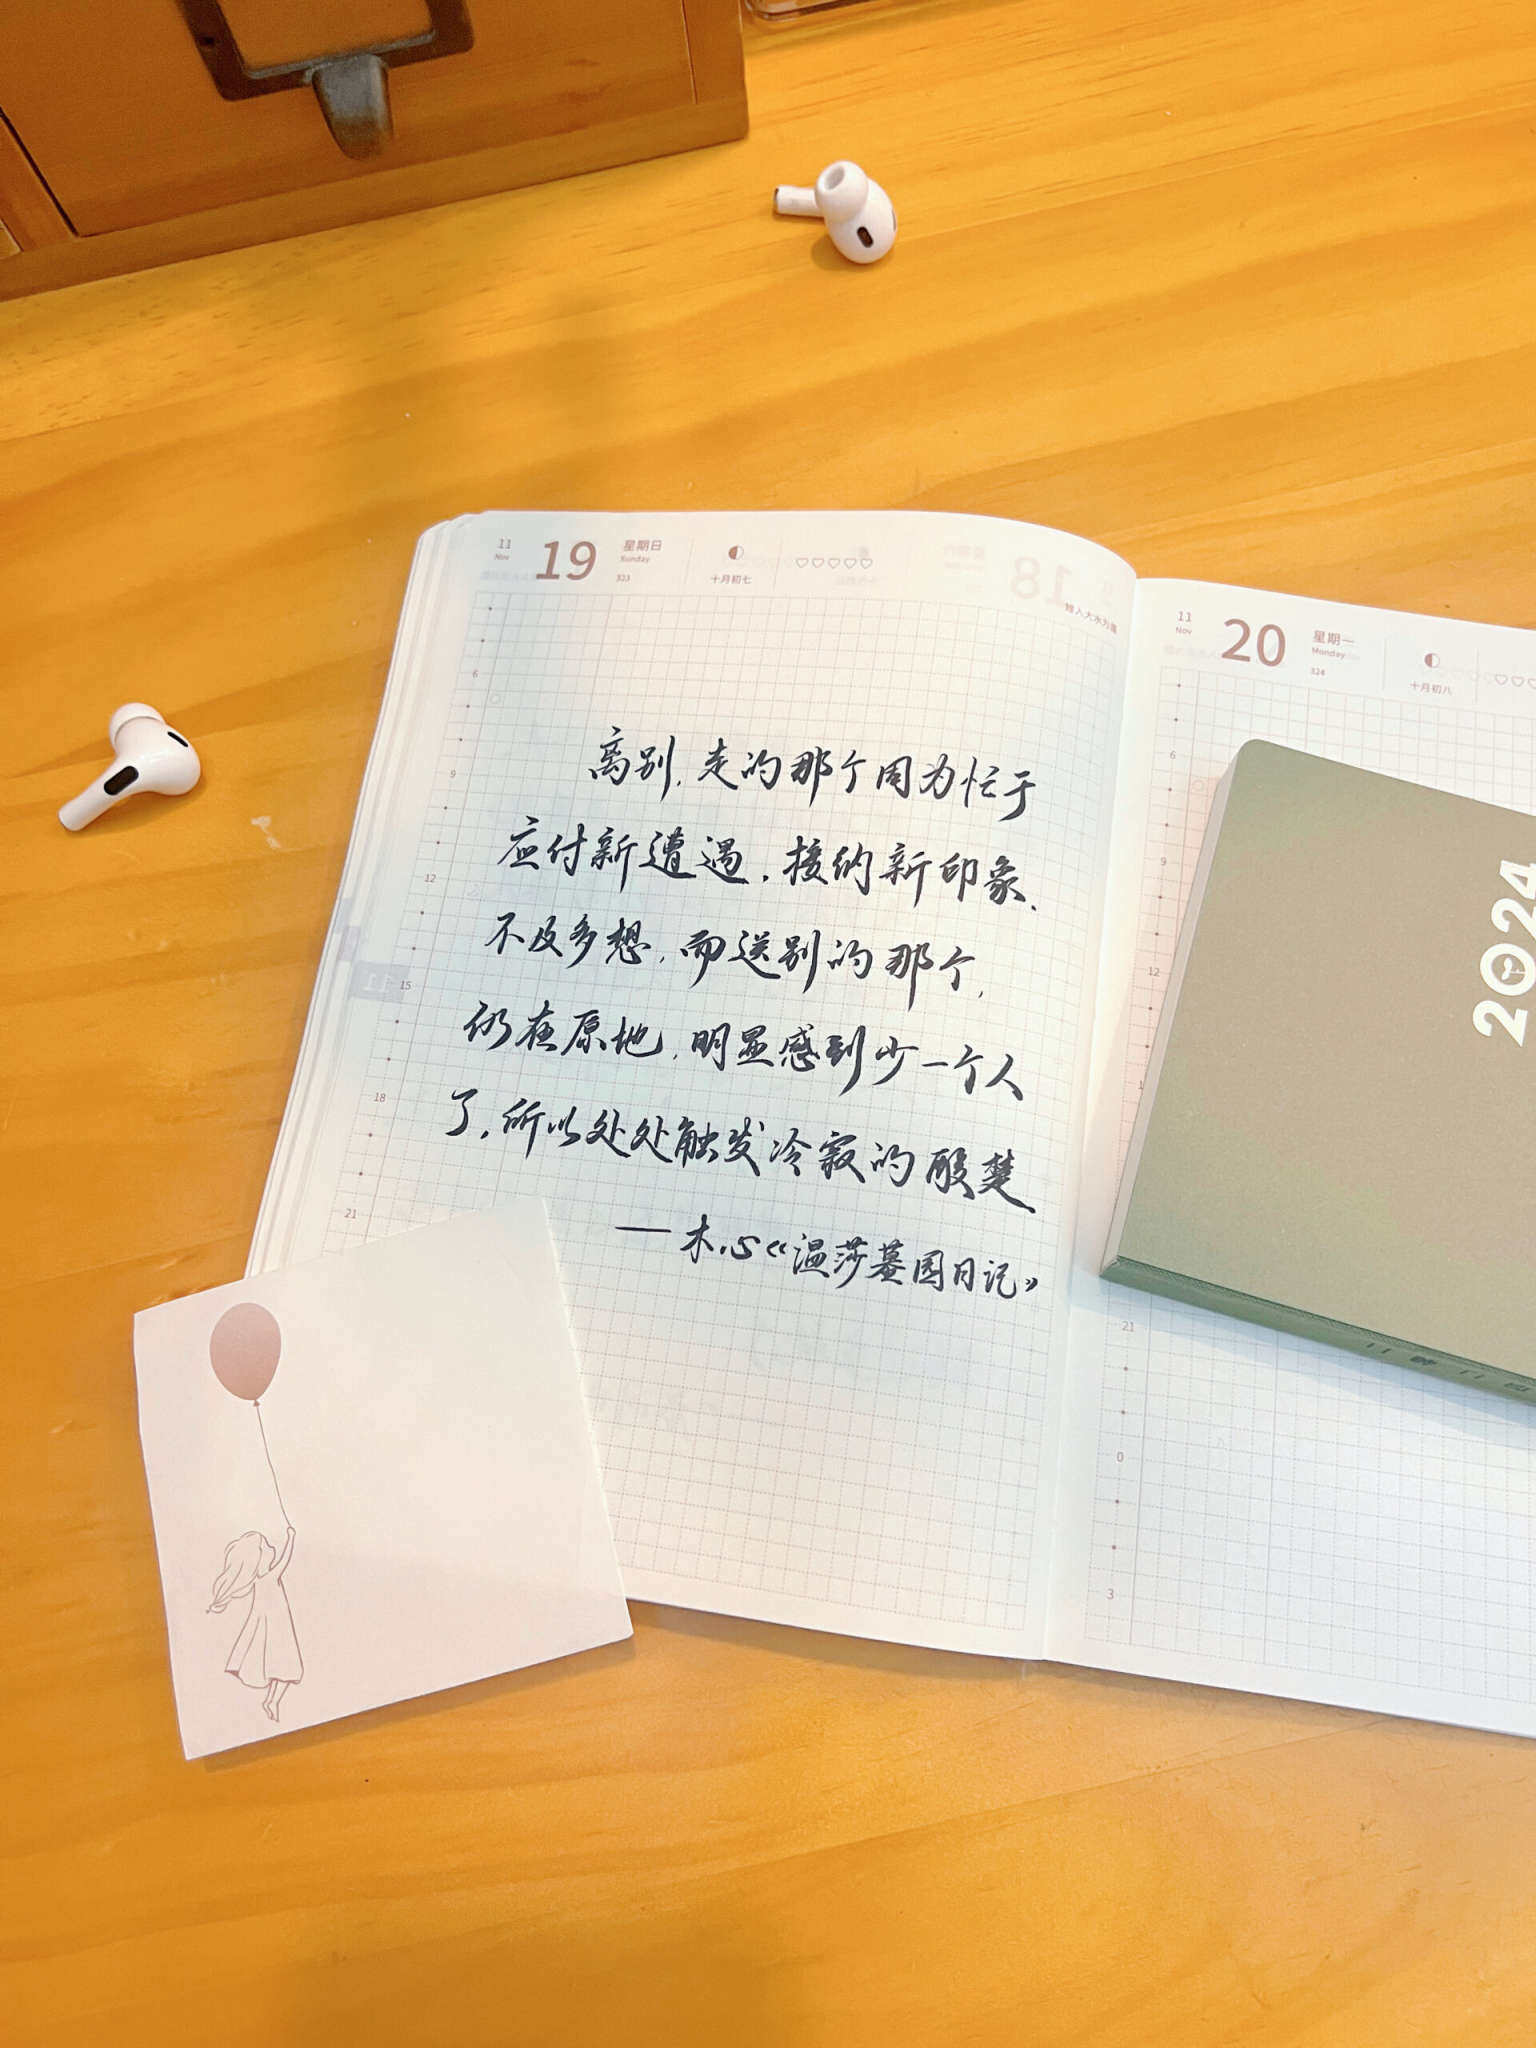 11
Nov
19
星期日
Sunday
323
十月初七
18
6
9
12
15
18
21
11
离别,走的那个因为忙于
应付新遭遇,接纳新印象,
不及多想,而送别的那个,
仍在原地,明显感到少一个人
了,所以处处触发冷寂的酸楚
——木心《温莎墓园日记》
11
Nov
20
星期一
Monday
324
十月初八
6
9
12
1
21
0
3
2024